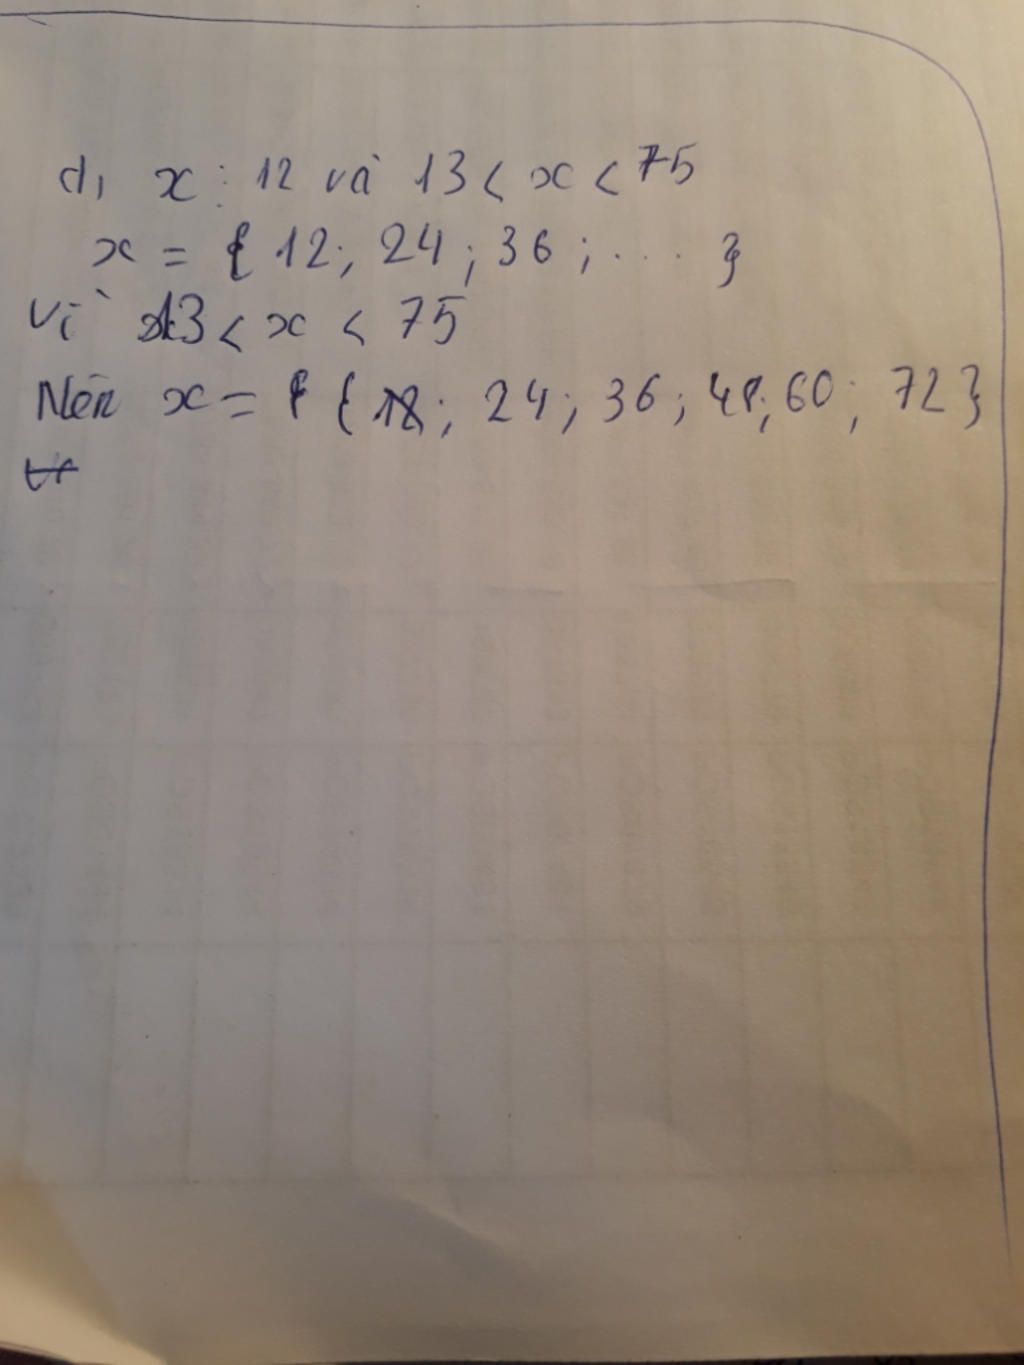 d, x ⋮ 12 và 13 < x < 75
x = { 12; 24; 36; .... }
Vì 13 < x < 75
Nên x = { 12; 24; 36; 48; 60; 72 }